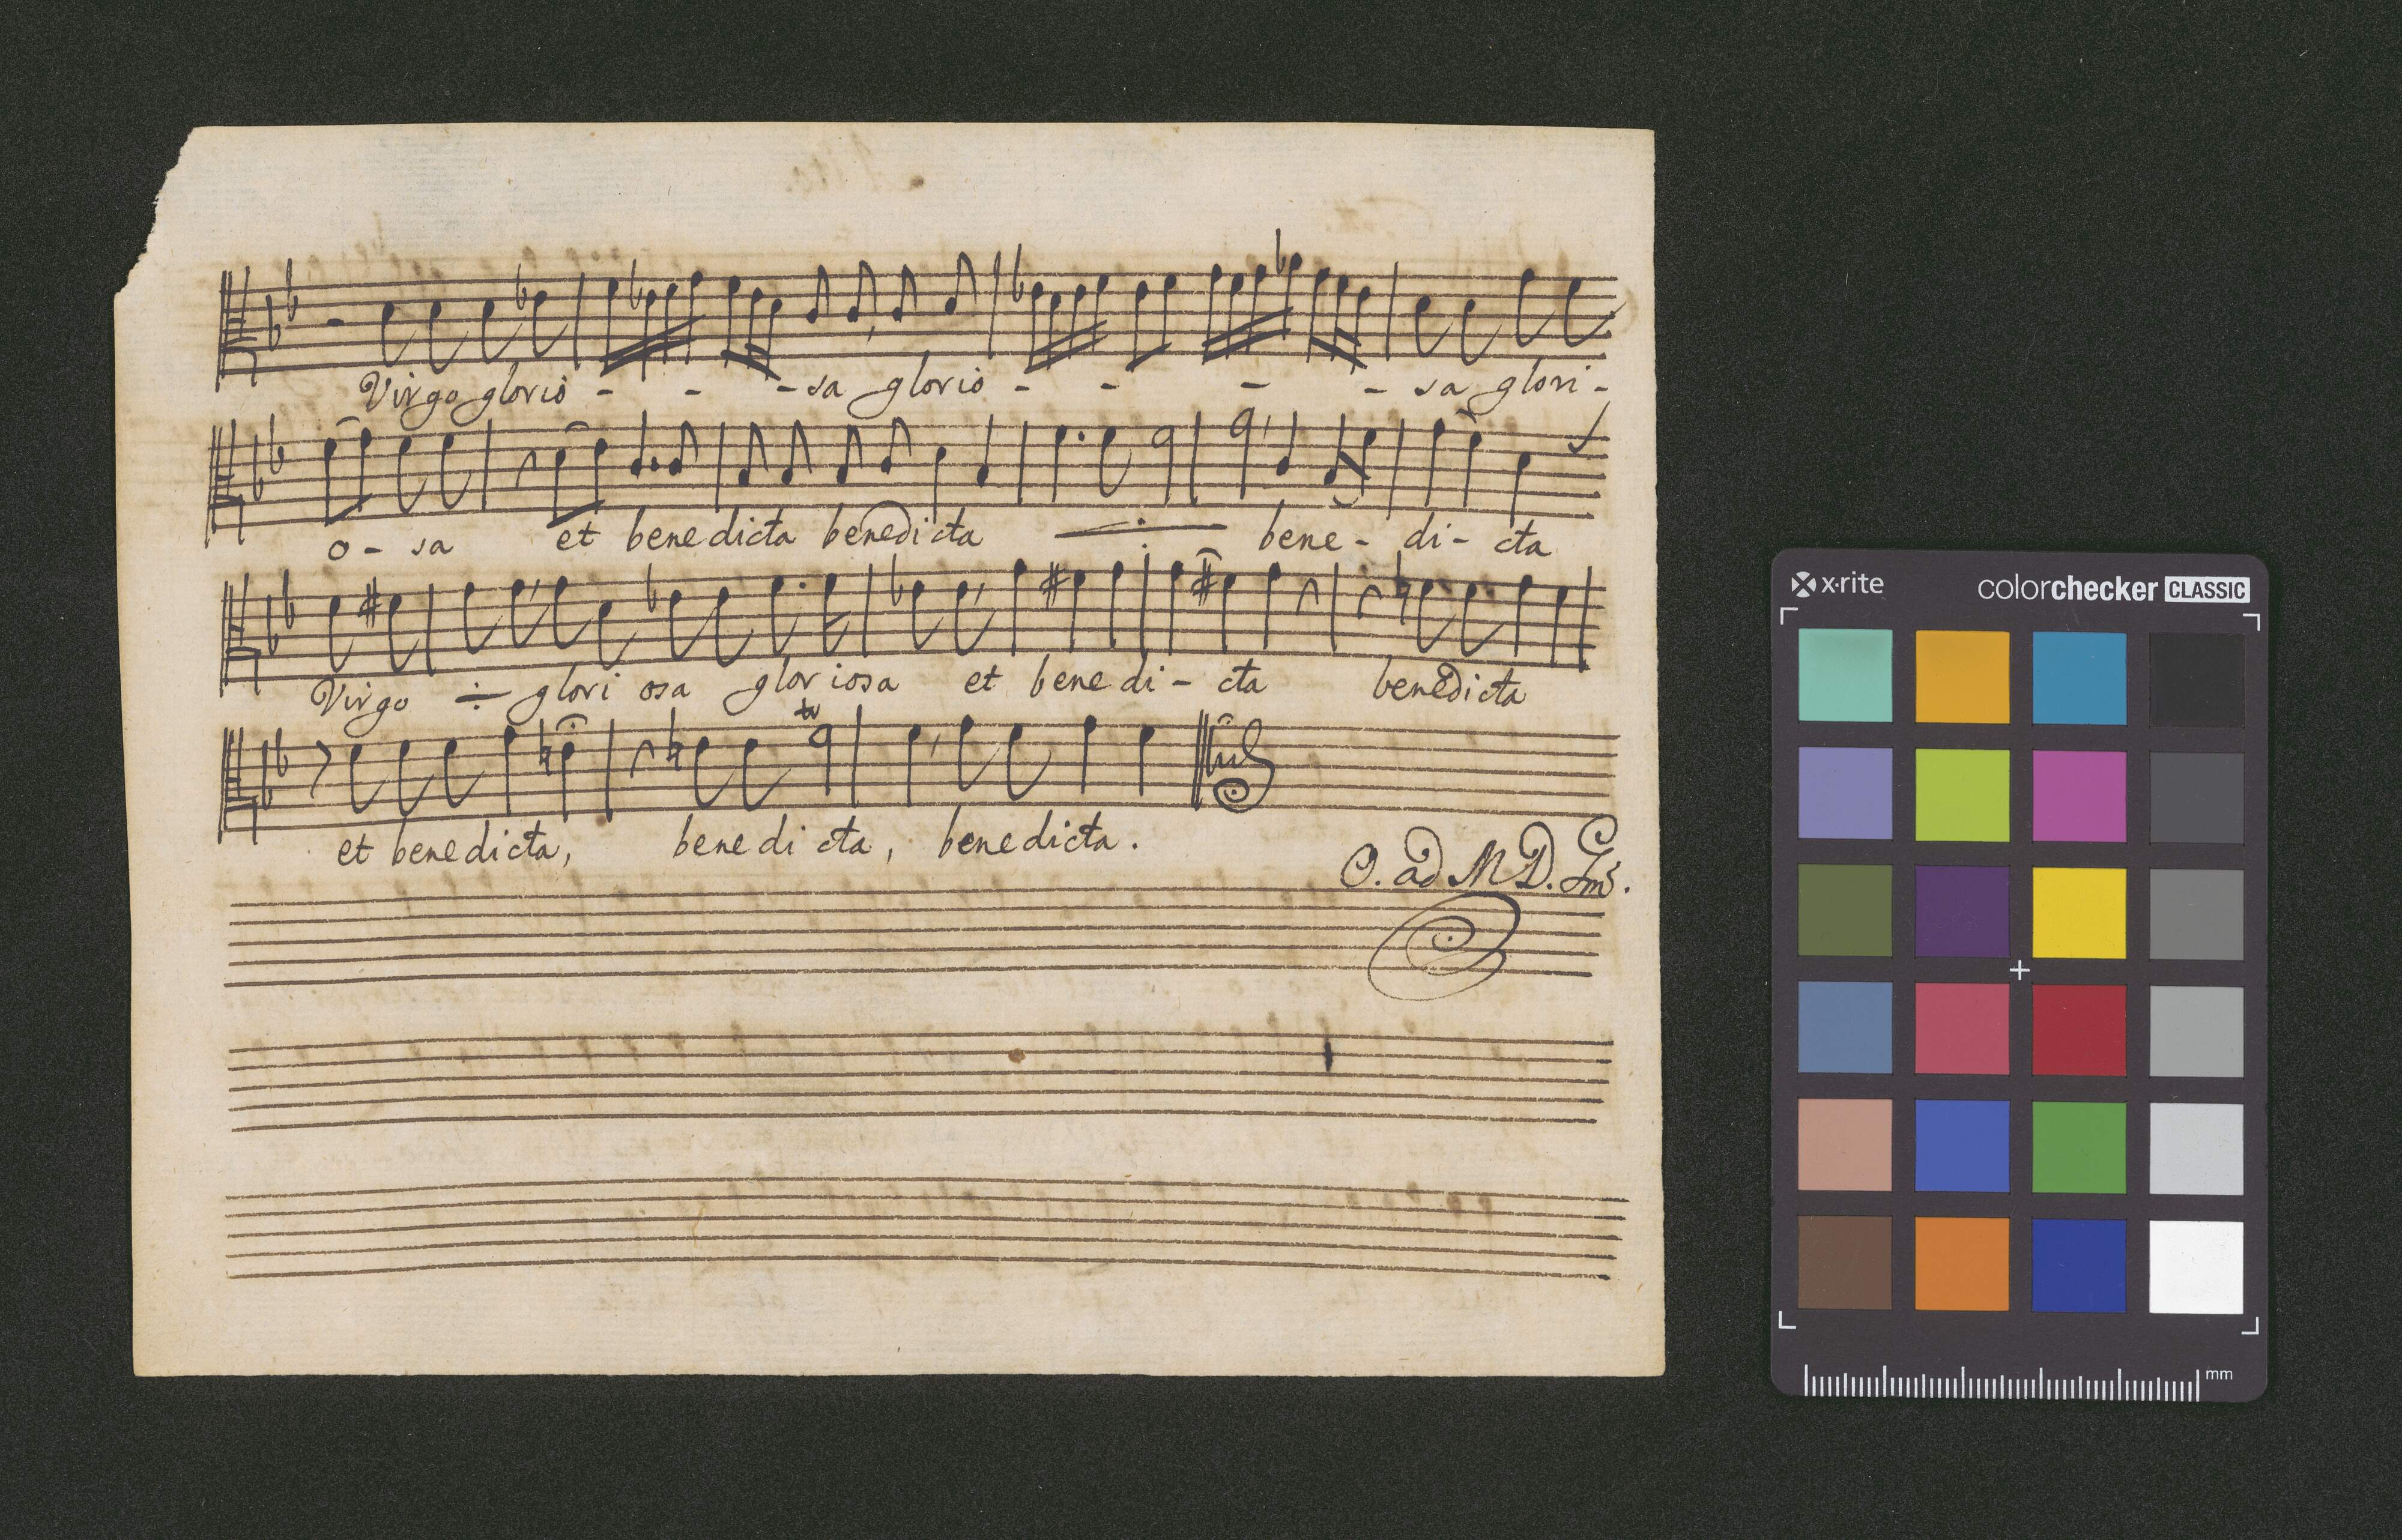 Virgo glorio - - - sa glorio - - - - sa glori -
o - sa et benedicta benedicta bene - di - cta
Virgo glori osa gloriosa et benedi - cta benedicta
et benedicta, benedi cta, benedicta.
O. ad M D. Gm̃.
x·rite colorchecker CLASSIC
mm